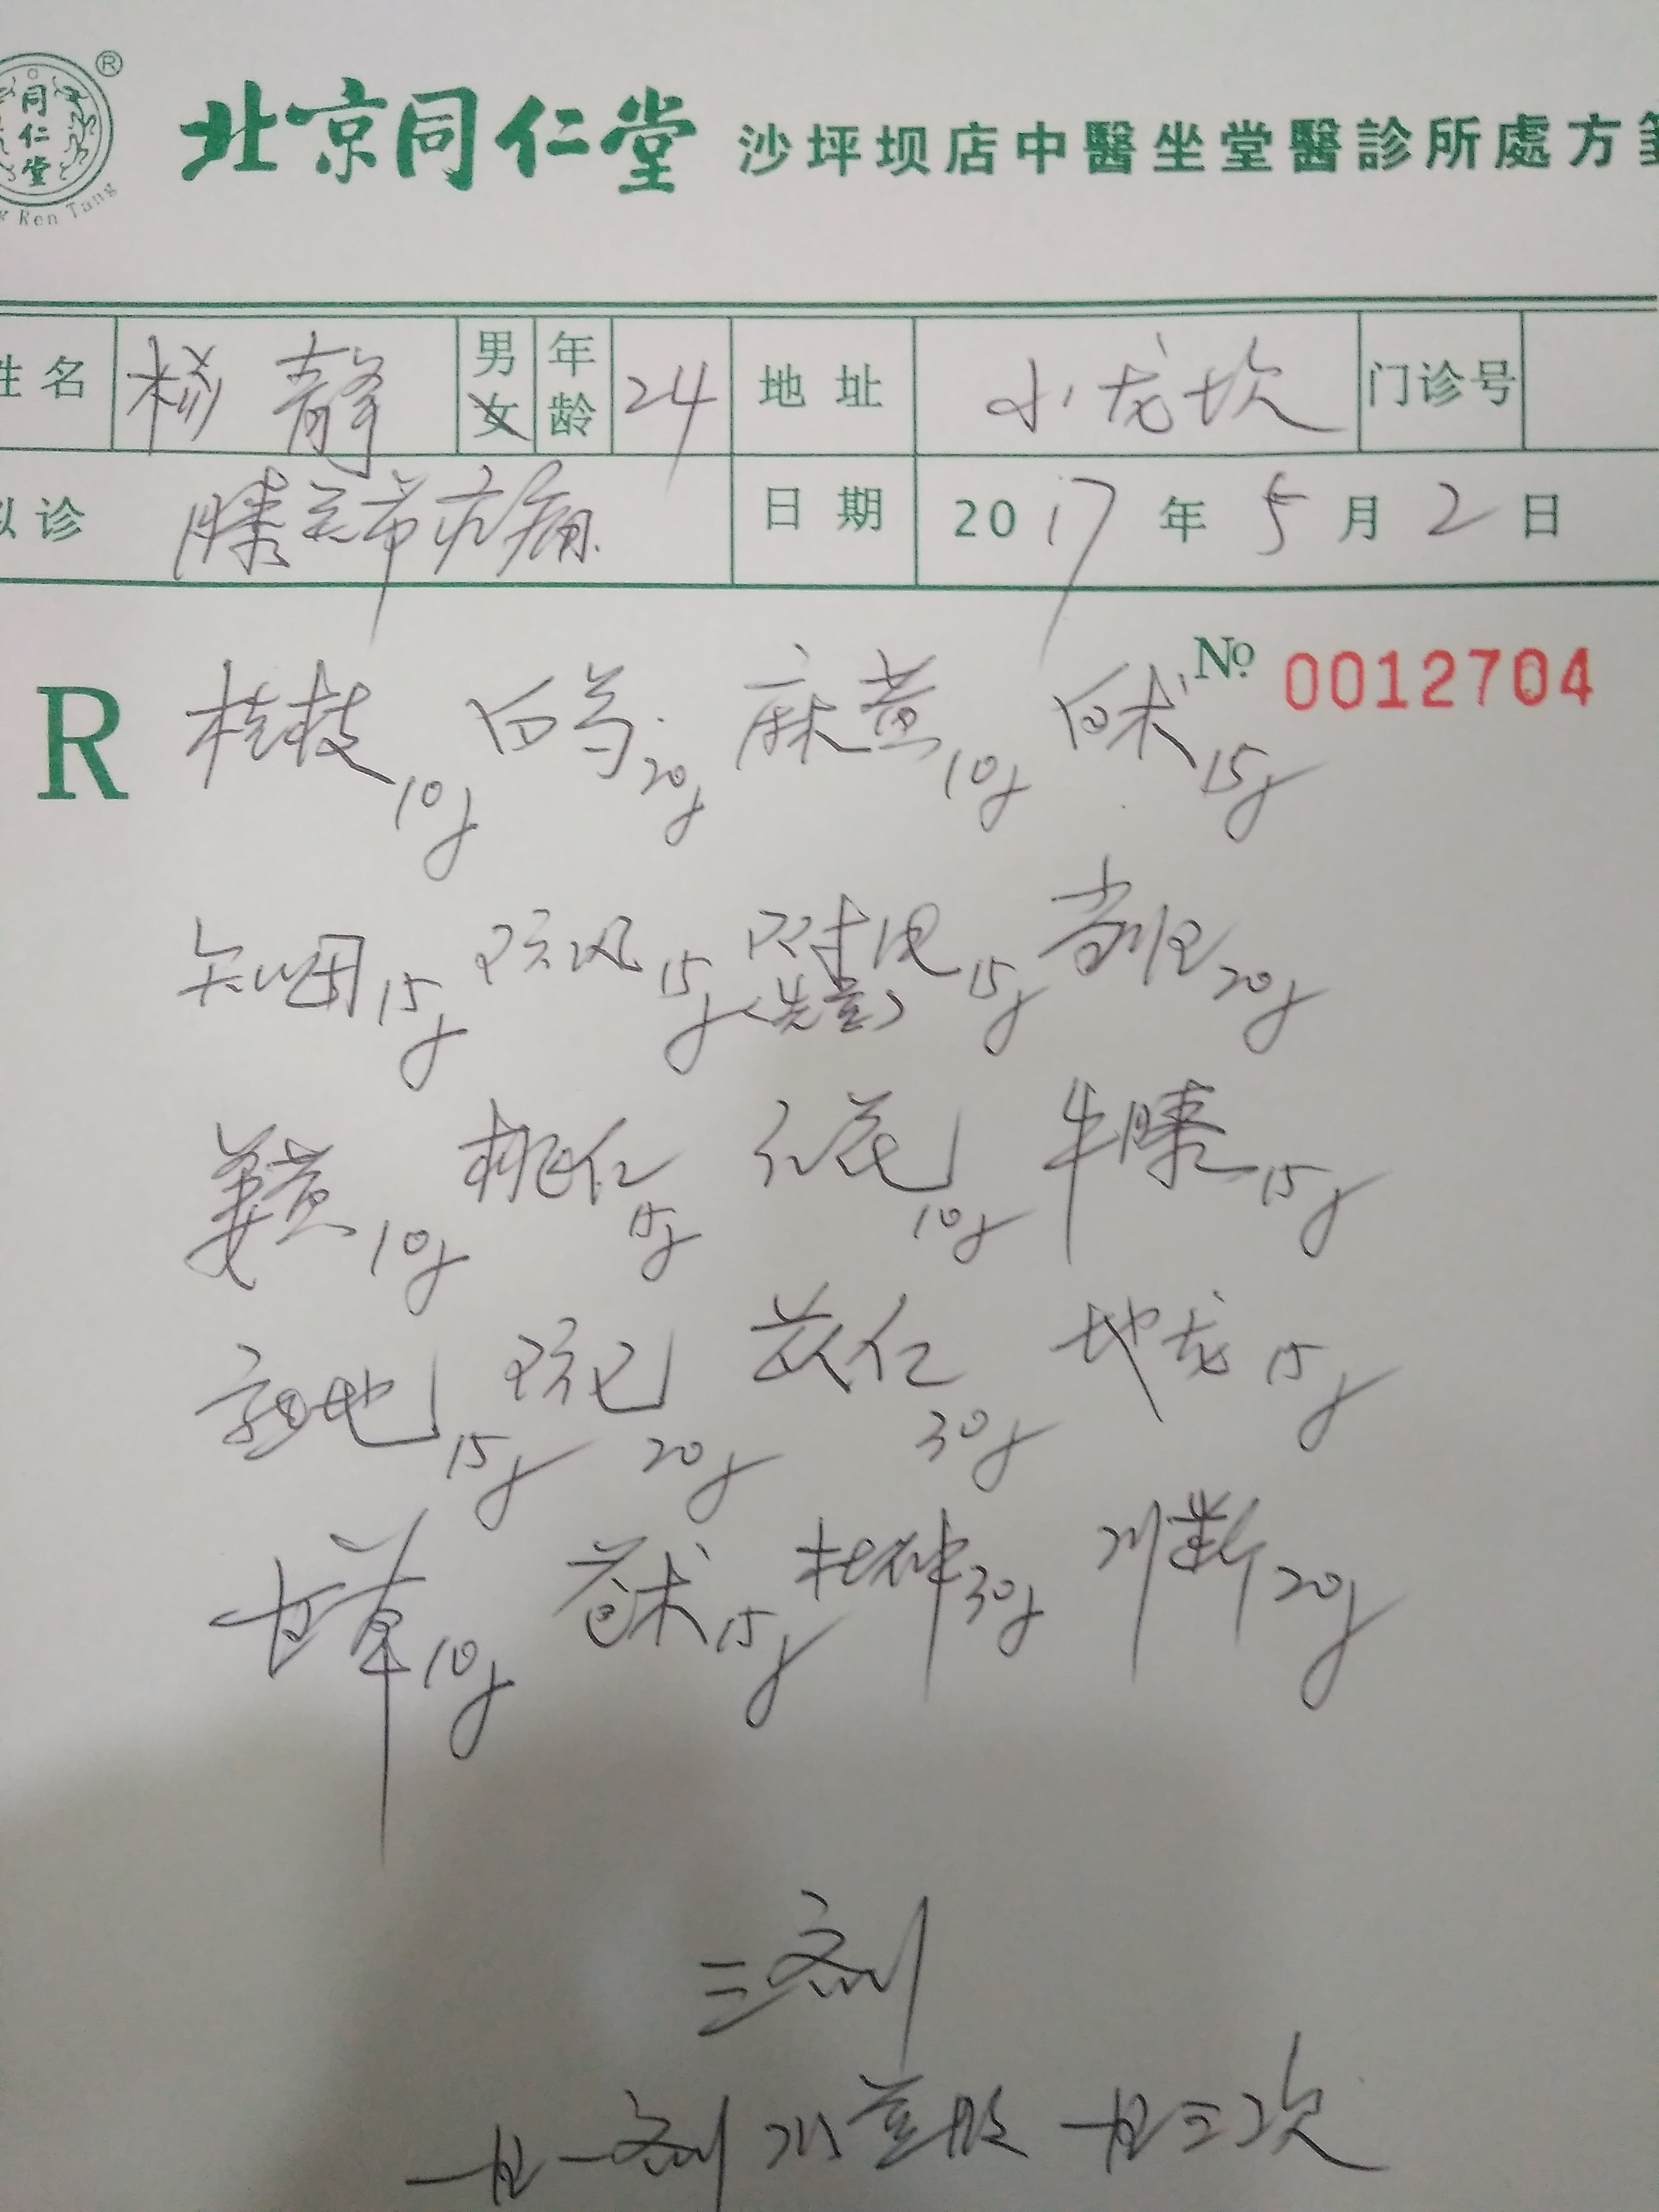 同仁堂
®
Ren Tang
北京同仁堂 沙坪坝店中醫坐堂醫診所處方箋
姓名 杨静 男 女 年龄 24 地址 小龙坎 门诊号
拟诊 膝关节疼痛 日期 2017年5月2日
No 0012704
R 桂枝10g 白芍20g 麻黄10g 白术15g
知母15g 防风15g 附片(先煎)15g 当归20g
姜黄10g 桃仁15g 红花10g 牛膝15g
熟地15g 防己20g 苡仁30g 地龙15g
甘草10g 苍术15g 杜仲30g 川断20g
三剂
一日一剂 水煎服 一日三次